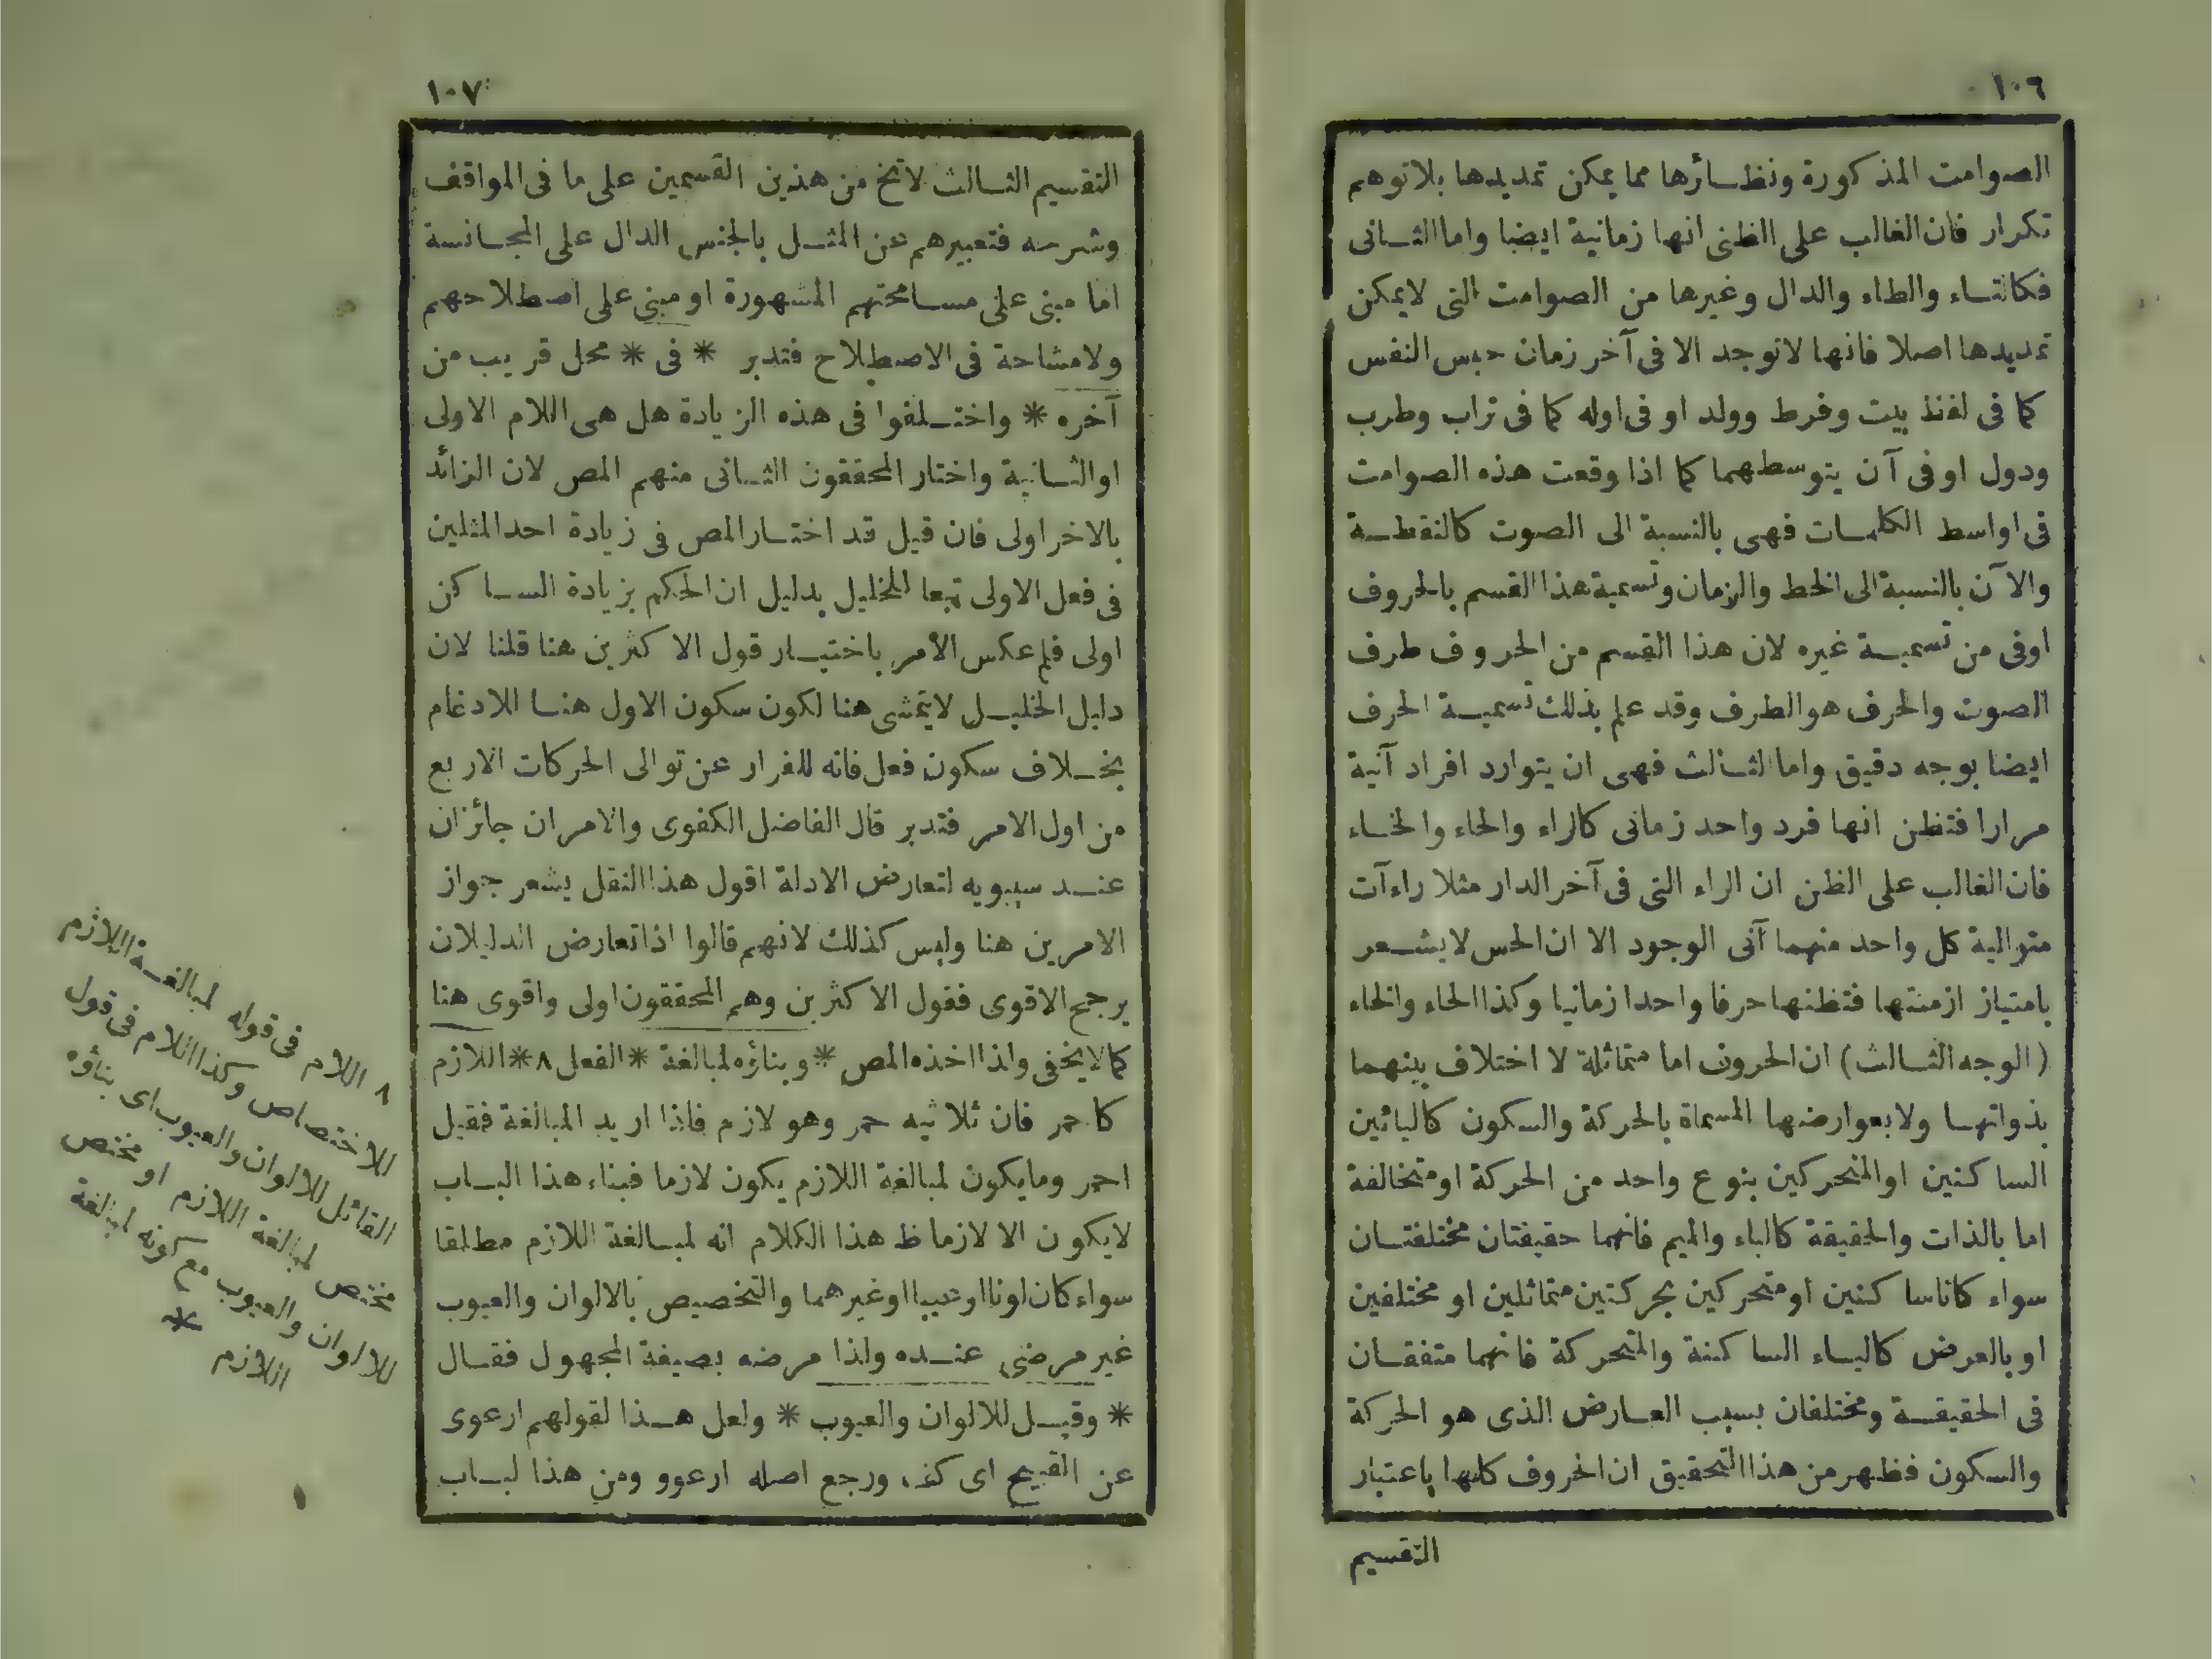 ١٠٦
الصوامت المذكورة ونظائرها مما يمكن تمديدها بلا توهم
تكرار فان الغالب على الظنى انها زمانية ايضا واما الثانى
فكالتاء والطاء والدال وغيرها من الصوامت التى لايمكن
تمديدها اصلا فانها لاتوجد الا فى آخر زمان حبس النفس
كما فى لفظ بيت وفرط وولد او فى اوله كما فى تراب وطرب
ودول او فى آن يتوسطهما كما اذا وقعت هذه الصوامت
فى اواسط الكلمات فهى بالنسبة الى الصوت كالنقطة
والآن بالنسبة الى الخط والزمان وتسمية هذا القسم بالحروف
اوفى من تسمية غيره لان هذا القسم من الحروف طرف
الصوت والحرف هو الطرف وقد علم بذلك تسمية الحرف
ايضا بوجه دقيق واما الثالث فهى ان يتوارد افراد آنية
مرارا فتظن انها فرد واحد زمانى كالراء والحاء والخاء
فان الغالب على الظن ان الراء التى فى آخر الدار مثلا راءآت
متوالية كل واحد منهما آنى الوجود الا ان الحس لايشعر
بامتياز ازمنتها فتظنها حرفا واحدا زمانيا وكذا الحاء والخاء
(الوجه الثالث) ان الحروف اما متماثلة لا اختلاف بينهما
بذواتها ولا بعوارضها المسماة بالحركة والسكون كالبائين
الساكنين او المتحركين بنوع واحد من الحركة او متخالفة
اما بالذات والحقيقة كالباء والميم فانهما حقيقتان مختلفتان
سواء كانا ساكنين او متحركين بحركتين متماثلين او مختلفين
او بالعرض كالباء الساكنة والمتحركة فانهما متفقان
فى الحقيقة ومختلفان بسبب العارض الذى هو الحركة
والسكون فظهر من هذا التحقيق ان الحروف كلها باعتبار
التقسيم
١٠٧
التقسيم الثالث لاتخ من هذين القسمين على ما فى المواقف
وشرحه فتعبيرهم عن المثل بالجنس الدال على المجانسة
اما مبنى على مسامحتهم المشهورة او مبنى على اصطلاحهم
ولا مشاحة فى الاصطلاح فتدبر * فى * محل قريب من
آخره * واختلفوا فى هذه الزيادة هل هى اللام الاولى
او الثانية واختار المحققون الثانى منهم المص لان الزائد
بالاخر اولى فان قيل قد اختار المص فى زيادة احد المثلين
فى فعل الاولى تبعا للخليل بدليل ان الحكم بزيادة الساكن
اولى فلم عكس الأمر باختيار قول الاكثرين هنا قلنا لان
دليل الخليل لايتمشى هنا لكون سكون الاول هنا للادغام
بخلاف سكون فعل فانه للفرار عن توالى الحركات الاربع
من اول الامر فتدبر قال الفاضل الكفوى والامران جائزان
عند سيبويه لتعارض الادلة اقول هذا النقل يشعر جواز
الامرين هنا وليس كذلك لانهم قالوا اذا تعارض الدليلان
يرجح الاقوى فقول الاكثرين وهم المحققون اولى واقوى هنا
كما لايخفى ولذا اخذه المص * وبناؤه لمبالغة * الفعل ٨ * اللازم
كاحمر فان ثلاثيه حمر وهو لازم فاذا اريد المبالغة فقيل
احمر ومايكون لمبالغة اللازم يكون لازما فبناء هذا الباب
لايكون الا لازما ظ هذا الكلام انه لمبالغة اللازم مطلقا
سواء كان لونا او عيبا او غيرهما والتخصيص بالالوان والعيوب
غير مرضى عنده ولذا مرضه بصيغة المجهول فقال
* وقيل للالوان والعيوب * ولعل هذا لقولهم ارعوى
عن القبيح اى كف ورجع اصله ارعوو ومن هذا لباب
٨ اللام فى قوله لمبالغة اللازم
للاختصاص وكذا اللام فى قول
القائل للالوان والعيوب اى بناؤه
مختص لمبالغة اللازم او مختص
للالوان والعيوب مع كونه لمبالغة
اللازم *